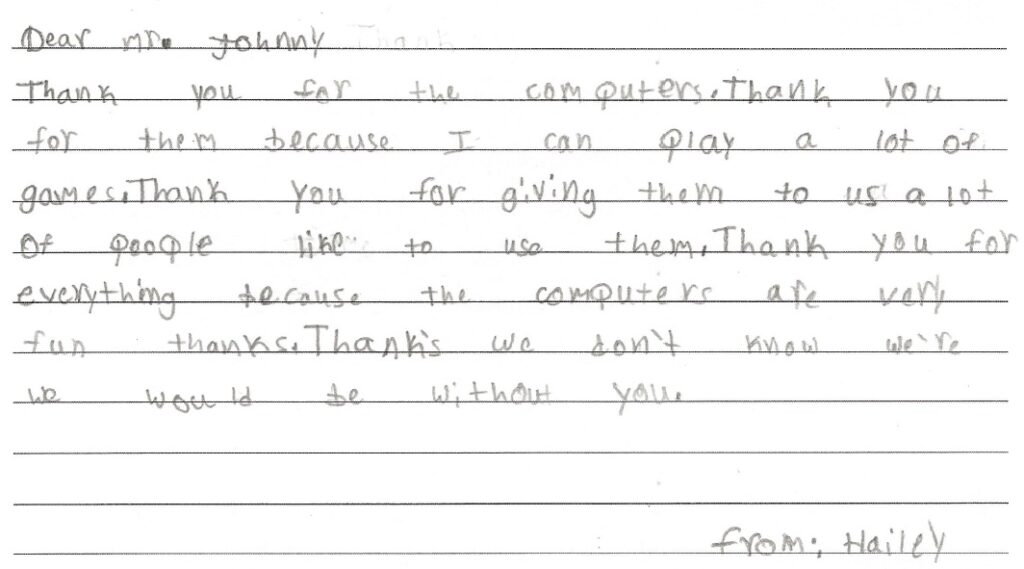 Dear mr. Johnny Thank
Thank you for the computers. Thank you
for them because I can play a lot of
games. Thank you for giving them to us a lot
of poople like to use them. Thank you for
everything because the computers are very
fun thanks. Thank's we don't know we're
we would be without you.
from: Hailey